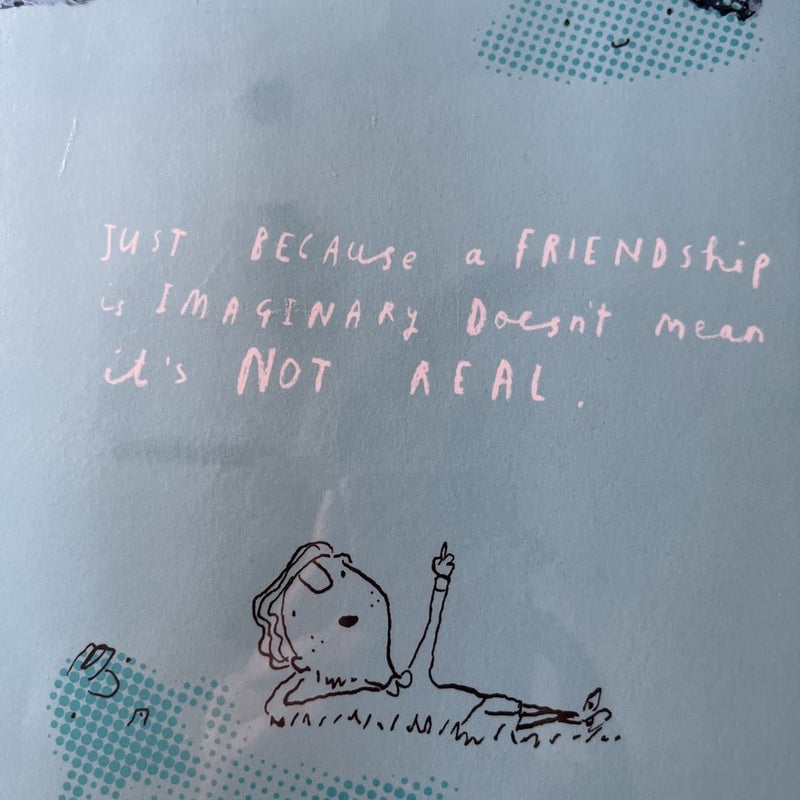 JUST BECAUSE a FRIENDship
is IMAGINARY Doesn't mean
it's NOT REAL.